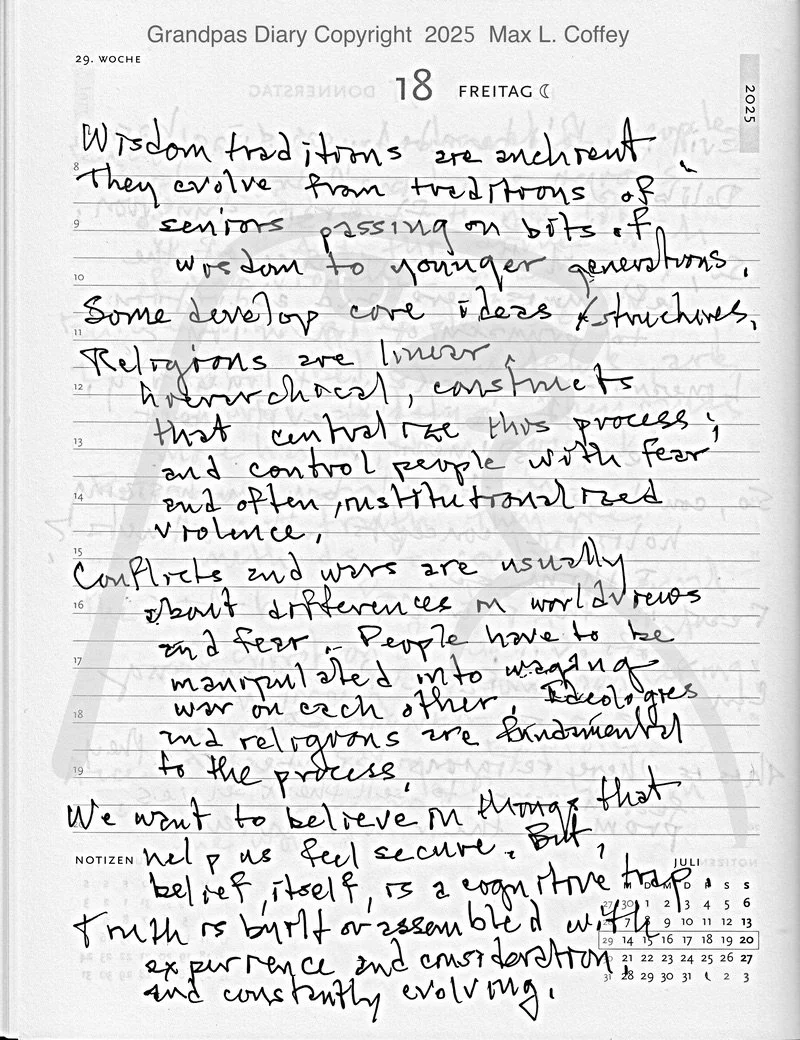 Grandpas Diary Copyright 2025 Max L. Coffey
29. WOCHE
18 FREITAG
2025
Wisdom traditions are anchient.
8
They evolve from traditions of
9
seniors passing on bits of
wisdom to younger generations.
10
Some develop core ideas & structures.
11
Religions are linear,
12
hierarchical, constructs
that centralize this process;
13
and control people with fear
14
and often institutionalized
violence.
15
Conflicts and wars are usually
16
about differences in worldviews
and fear. People have to be
17
manipulated into waging
war on each other. Ideologies
18
and religions are fundamental
19
to the process.
We want to believe in things that
NOTIZEN help us feel secure. But,
JULI
belief, itself, is a cognitive trap.
M D M D F S S
27 30 1 2 3 4 5 6
Truth is built or assembled with
7 8 9 10 11 12 13
29 14 15 16 17 18 19 20
experience and consideration,
25 26 27
31 28 29 30 31 1 2 3
and constantly evolving.